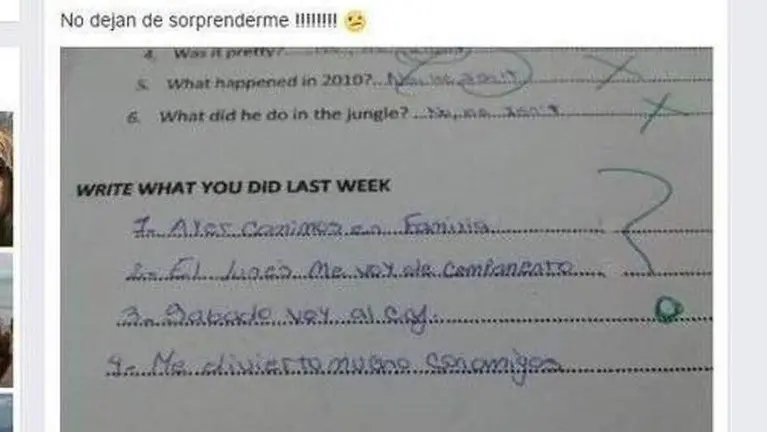 No dejan de sorprenderme !!!!!!!!
4. Was it pretty?
5. What happened in 2010? No, he don't
6. What did he do in the jungle? No, he don't
WRITE WHAT YOU DID LAST WEEK
1- Ayer comimos en Familia
2- El lunes Me voy de campamento
3- Sabado voy al
4- Me divierto mucho con amigos
?